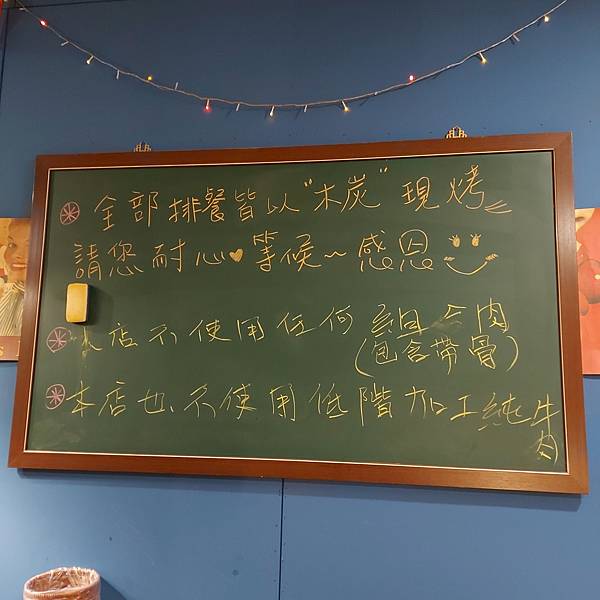 全部排餐皆以"木炭"現烤
請您耐心♥等候~感恩
本店不使用任何組合肉
(包含帶骨)
本店也不使用低階加工純牛肉